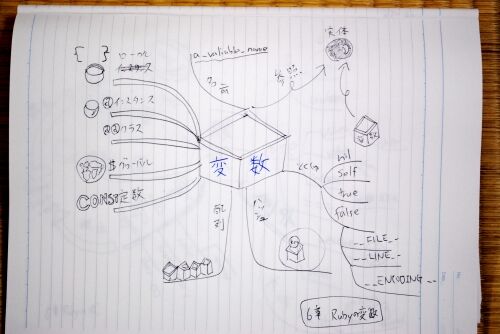 { } ローカル
a_valiable_name
実体
名前
参照
@インスタンス
@@クラス
$グローバル
CONST定数
変数
nil
self
true
false
__FILE__
__LINE__
__ENCODING__
配列
ハッシュ
6章 Rubyの変数